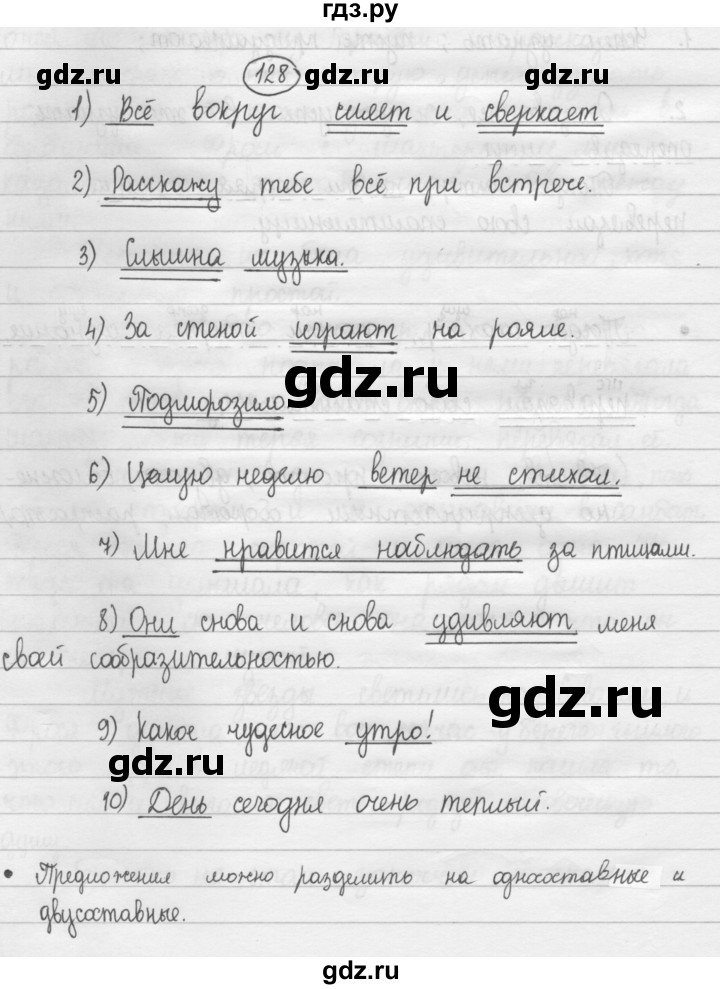 гдз.ру
128
1) Всё вокруг сияет и сверкает
2) Расскажу тебе всё при встрече.
3) Слышна музыка.
4) За стеной играют на рояле.
5) Подморозило
6) Целую неделю ветер не стихал.
7) Мне нравится наблюдать за птицами.
8) Они снова и снова удивляют меня
своей сообразительностью.
9) Какое чудесное утро!
10) День сегодня очень теплый.
• Предложения можно разделить на односоставные и
двусоставные.
gdz.ru
gdz.ru
gdz.ru
gdz.ru
gdz.ru
gdz.ru
gdz.ru
gdz.ru
gdz.ru
gdz.ru
gdz.ru